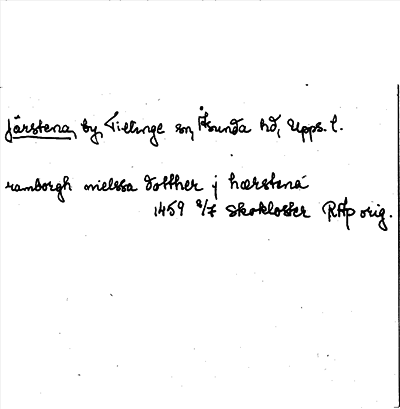 Järstena, by, Tillinge sn, Åsunda hd, Upps. l.
ramborgh nielssa dotther j hærstena
1459 8/7 Skokloster RAp orig.